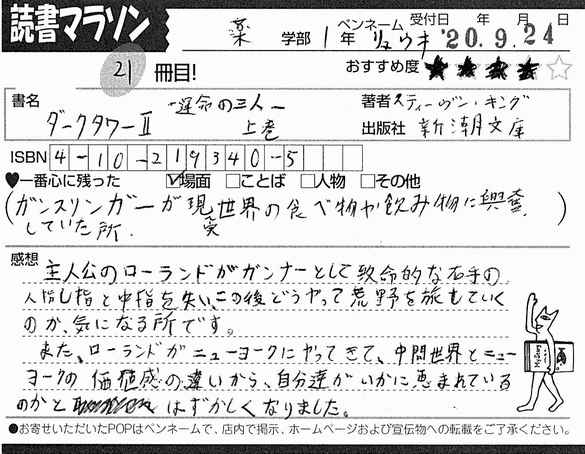 読書マラソン
薬 学部 1年 ペンネーム リュウキ 受付日 年 月 日 '20.9.24
21 冊目! おすすめ度 ★★★★☆
書名 ダークタワーⅡ -運命の三人- 上巻
著者名 スティーヴン・キング
出版社 新潮文庫
ISBN 4-10-219340-5
♥一番心に残った ☑場面 □ことば □人物 □その他
(ガンスリンガーが現実世界の食べ物や飲み物に興奮
していた所. )
感想 主人公のローランドがガンナーとして致命的な右手の
人指し指と中指を失い、この後どうやって荒野を旅もしていく
のか、気になる所です。
また、ローランドがニューヨークにやってきて、中間世界とニュー
ヨークの価値感の違いから、自分達がいかに恵まれている
のかと はずかしくなりました。
●お寄せいただいたPOPはペンネームで、店内で掲示、ホームページおよび宣伝物への転載をご了承ください。